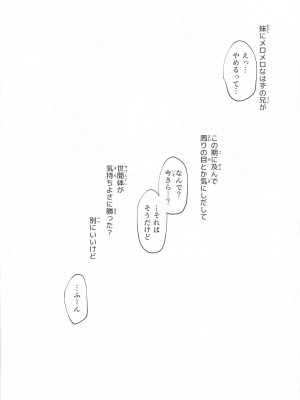 妹にメロメロなはずの兄が
えっ…
やめるって…
この期に及んで
周りの目とか気にしだして
なんで?
今さら…?
…それは
そうだけど
世間体が
気持ちよさに勝った?
別にいいけど
…ふーん